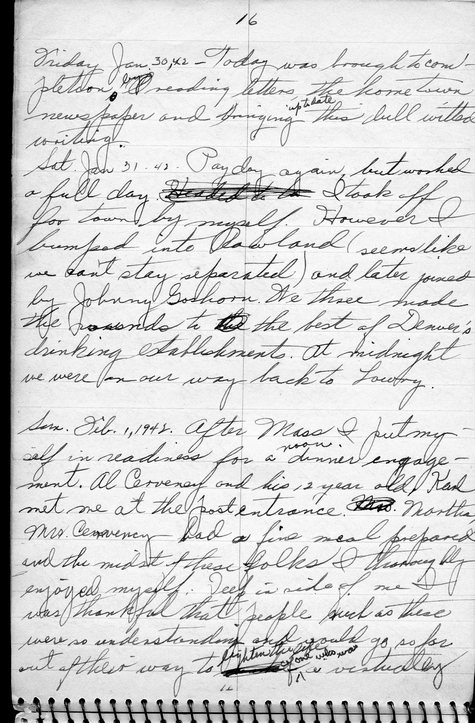 16
Friday Jan. 30, 42 - Today was brought to com-
pletion by reading letters, the home town
newspaper and bringing up to date this dull witted
writing.
Sat. Jan 31 - 42. Payday again, but worked
a full day. I took off
for town by myself. However I
bumped into Rowland (seems like
we can't stay separated) and later joined
by Johnny Goshorn. We three made
the rounds to the best of Denver's
drinking establishments. At midnight
we were on our way back to Lowry.
Sun. Feb. 1, 1942. After Mass I put my-
self in readiness for a noon dinner engage-
ment. Al Cerveney and his 12 year old, Karl
met me at the post entrance. Martha
Mrs. Cerveney had a fine meal prepared
and the midst of these folks I thoroughly
enjoyed myself. Deep in side of me I
was thankful that people such as these
were so understanding and would go so far
out of their way to brighten the life
of one who was a virtually